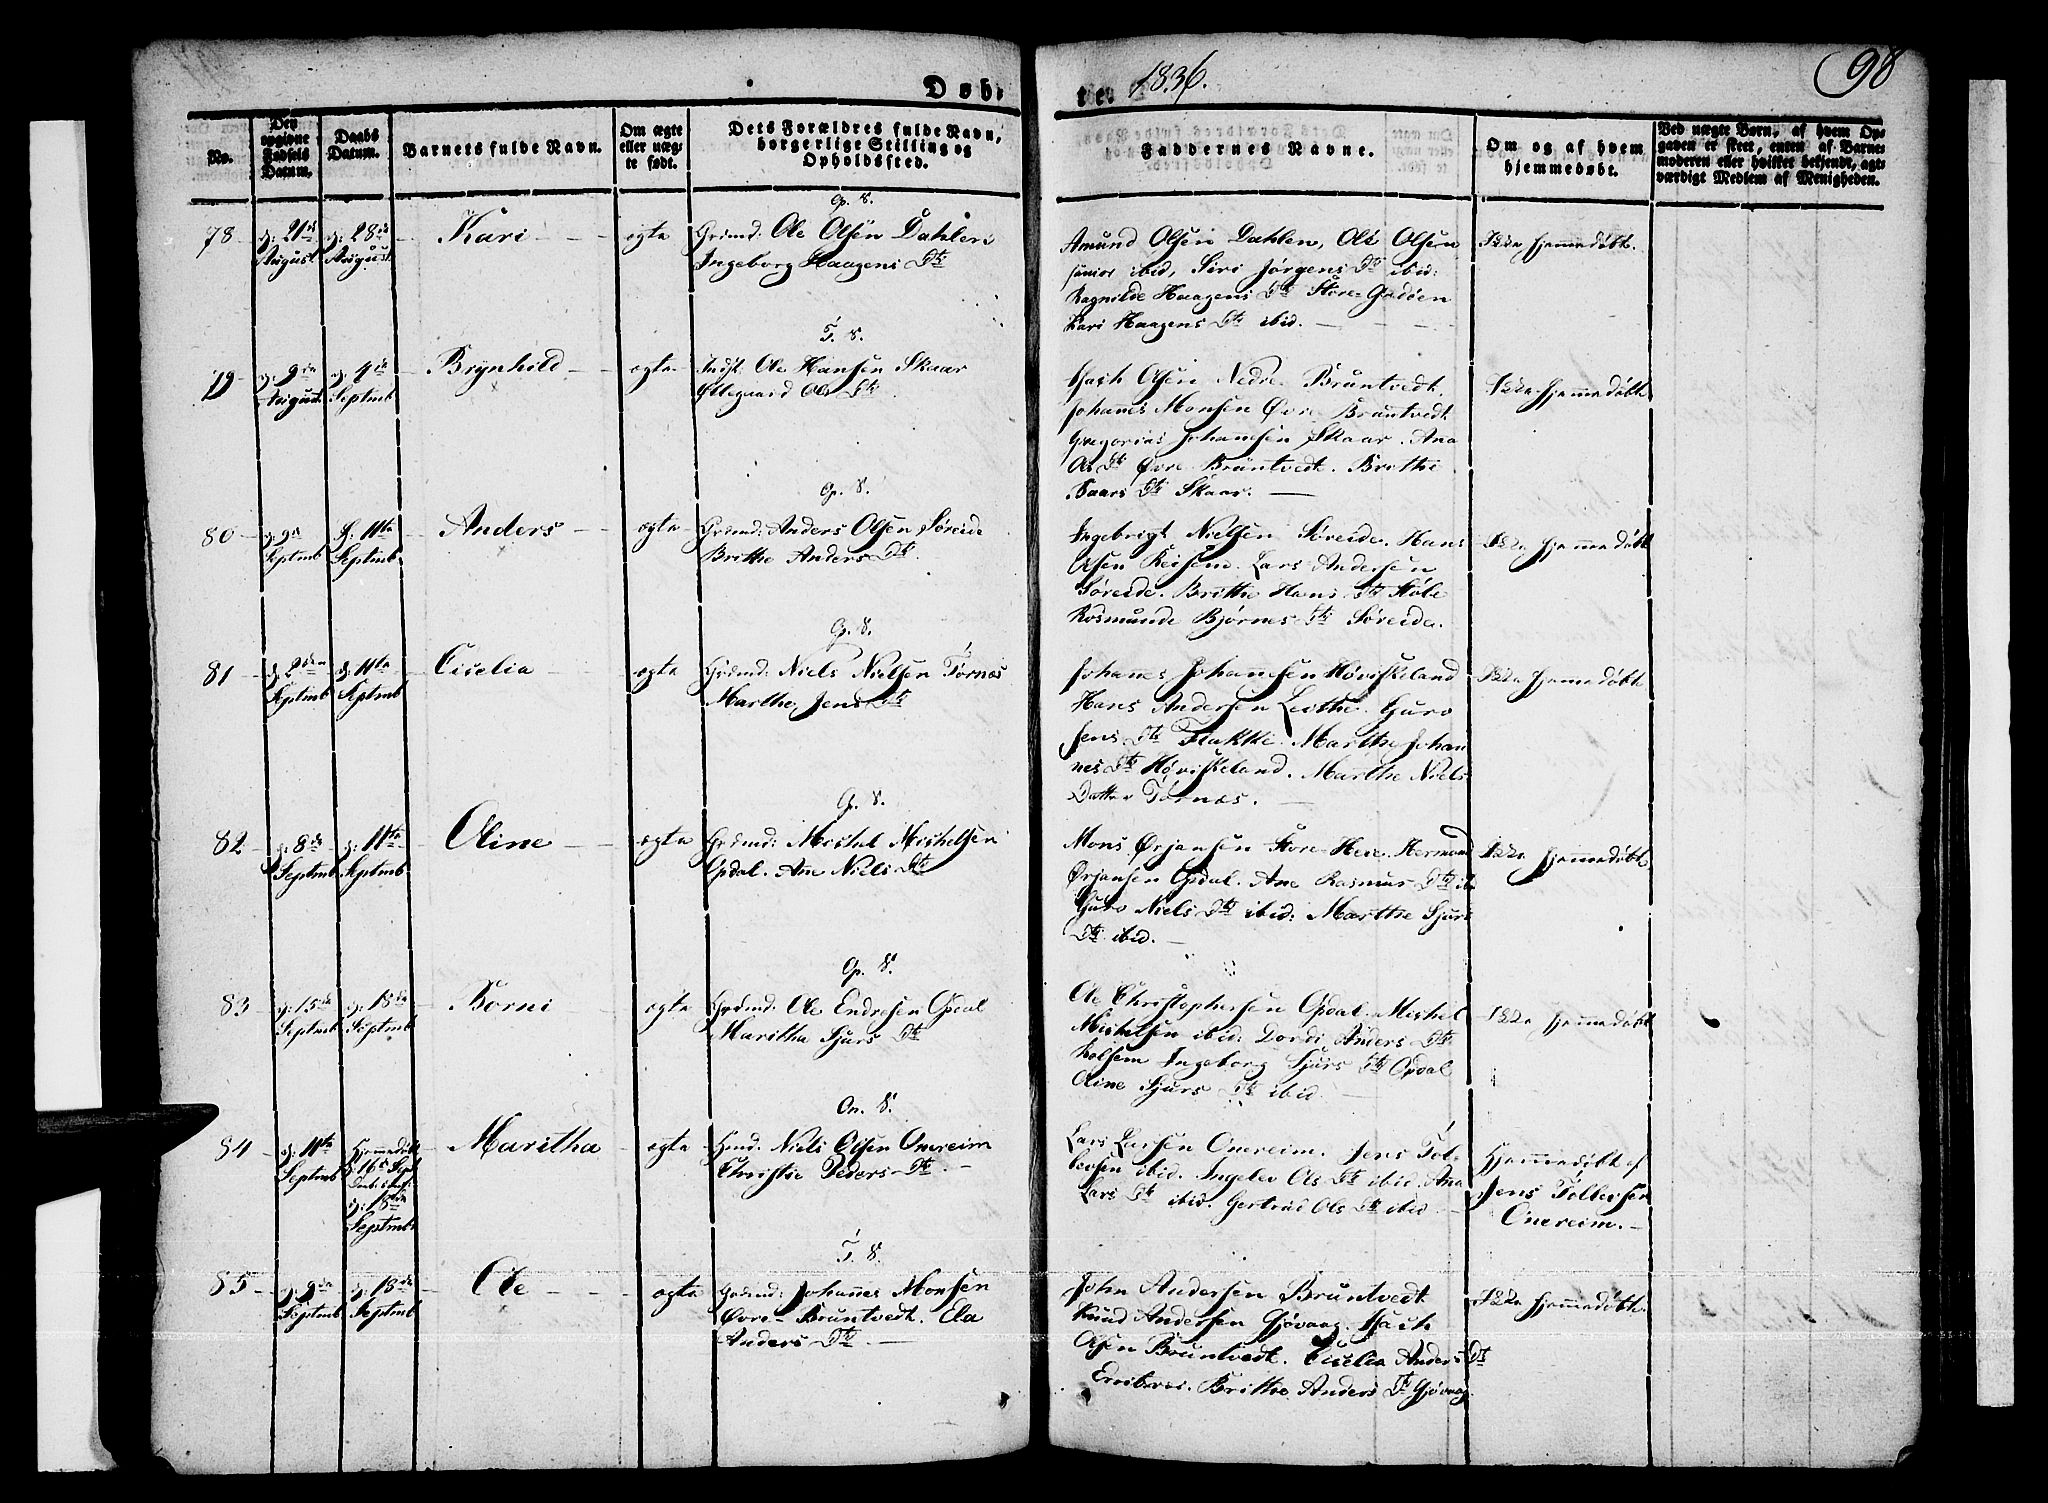 98
Døb- te. 1836.
No.
Den opgivne Fødsels Datum.
Daabs Datum.
Barnets fulde Navn.
Om ægte eller uægte født.
Dets Forældres fulde Navn, borgerlige Stilling og Opholdssted.
Faddernes Navne.
Om og af hvem hjemmedøbt.
Ved uægte Børn, af hvem Opgaven er skeet, enten af Barnemoderen eller hvilket bekjendt, agtværdigt Medlem af Menigheden.
Op. S.
78 d: 21de August d: 28de August Kari ægte Grūnd: Ole Olsen Dahlen
Ingeborg Haagens Dtr
Amund Olsen Dahlen, Ole Olsen
junior ibid, Siri Jørgens Dtr ibid:
Ragnilde Haagens Dtr Store-
Kari Haagens Dtr ibid.
Ikke hjemmedøbt.
T. S.
79 d: 9de August d: 4de Septmb Brynhild ægte Indst. Ole Hansen Skaar
Ollegaard Ols Dtr
Olsen Nedre Brūntvedt.
Johanes Monsen Øvre Brūntvedt
Gregorius Johannesen Skaar. Ana
Ols Dtr Øvre Brūntvedt. Brithe
Baars Dtr Skaar.
Ikke hjemmedøbt
Op. S.
80 d: 9de Septmb d: 11te Septmb Anders ægte Grūnd: Anders Olsen Søreide
Brithe Anders Dtr
Ingebrigt Nielsen Søreide. Hans
Olsen. Lars Andersen
Søreide. Brithe Hans Dtr
Rosmunde Bjørnes Dtr Søreide.
Ikke hjemmedøbt
G. S.
81 d: 2den Septmb d: 11te Septmb Ciselia ægte Grūnd: Niels Nielsen Tørnæs
Marthe Jens Dtr
Johannes Johannesen Høviskeland
Hans Andersen. Guro
Jens Dtr Flakke. Marthe Johan
nes Dtr Høviskeland. Marthe Niels
Datter Tørnæs.
Ikke hjemmedøbt
Op. S.
82 d: 8de Septmb d: 11te Septmb Oline ægte Grūnd: Mechel Michelsen
Opdal. Ane Niels Dtr
Mons Ørjansen Store-. Hermund
Ørjansen Opdal. Ane Rasmus Dtr
Guro Niels Dtr ibid: Marthe Sjurs
Dtr ibid.
Ikke hjemmedøbt
Op. S.
83 d: 15de Septmb d: 18de Septmb Borni ægte Grūnd: Ole Endresen Opdal
Maritha Sjurs Dtr
Ole Christophersen Opdal. Mechel
Michelsen ibid: Dordi Anders Dtr
Ingeborg Sjurs Dtr Opdal
Oline Sjurs Dtr ibid
Ikke hjemmedøbt
On. S.
84 d: 11te Septmb Hjemmedøbt d: 16de Sept
d: 18de Septmb Maritha ægte Niels Olsen Onereim
Christie Peders Dtr
Lars Larsen Onereim. Jens Tol-
lefsen ibid. Ingelev Ols Dtr ibid. Ana
Lars Dtr ibid. Gertrud Ols Dtr ibid
Hjemmedøbt af
Jens Tollefsen
Onereim.
T. S.
85 d: 9de Septmb d: 18de Septmb Ole ægte Grūnd: Johannes Monsen
Øvre-Brūntvedt. Ela
Anders Dtr
John Andersen Brūntvedt
Knud Andersen Gjøvaag.
Olsen Brūntvedt. Ciselia Anders Dtr
Brithe Anders Dtr Gjøvaag
Ikke hjemmedøbt.